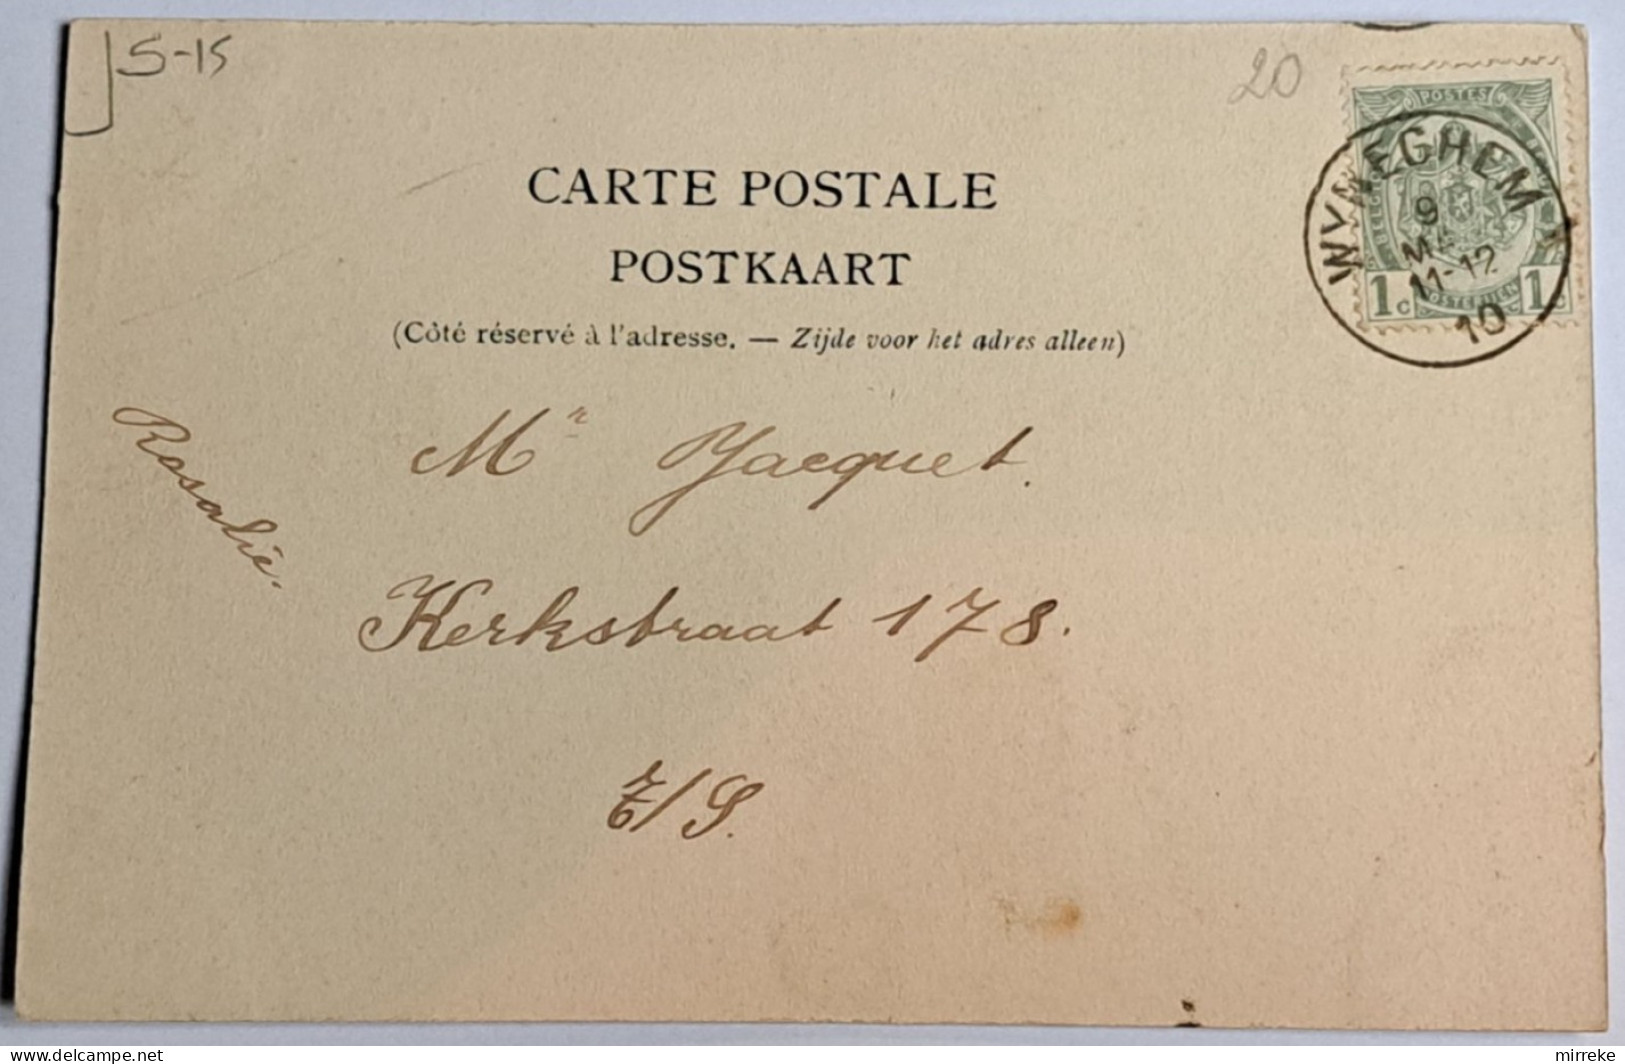 S-15
20
POSTES
BELGIQUE
1c 1c
POSTERIJEN
WYNEGHEM
9
MA
11-12
10
CARTE POSTALE
POSTKAART
(Côté réservé à l'adresse. — Zijde voor het adres alleen)
Rosalie.
Mr Jacquet.
Kerkstraat 178.
E/S.
delcampe.net
mirreke